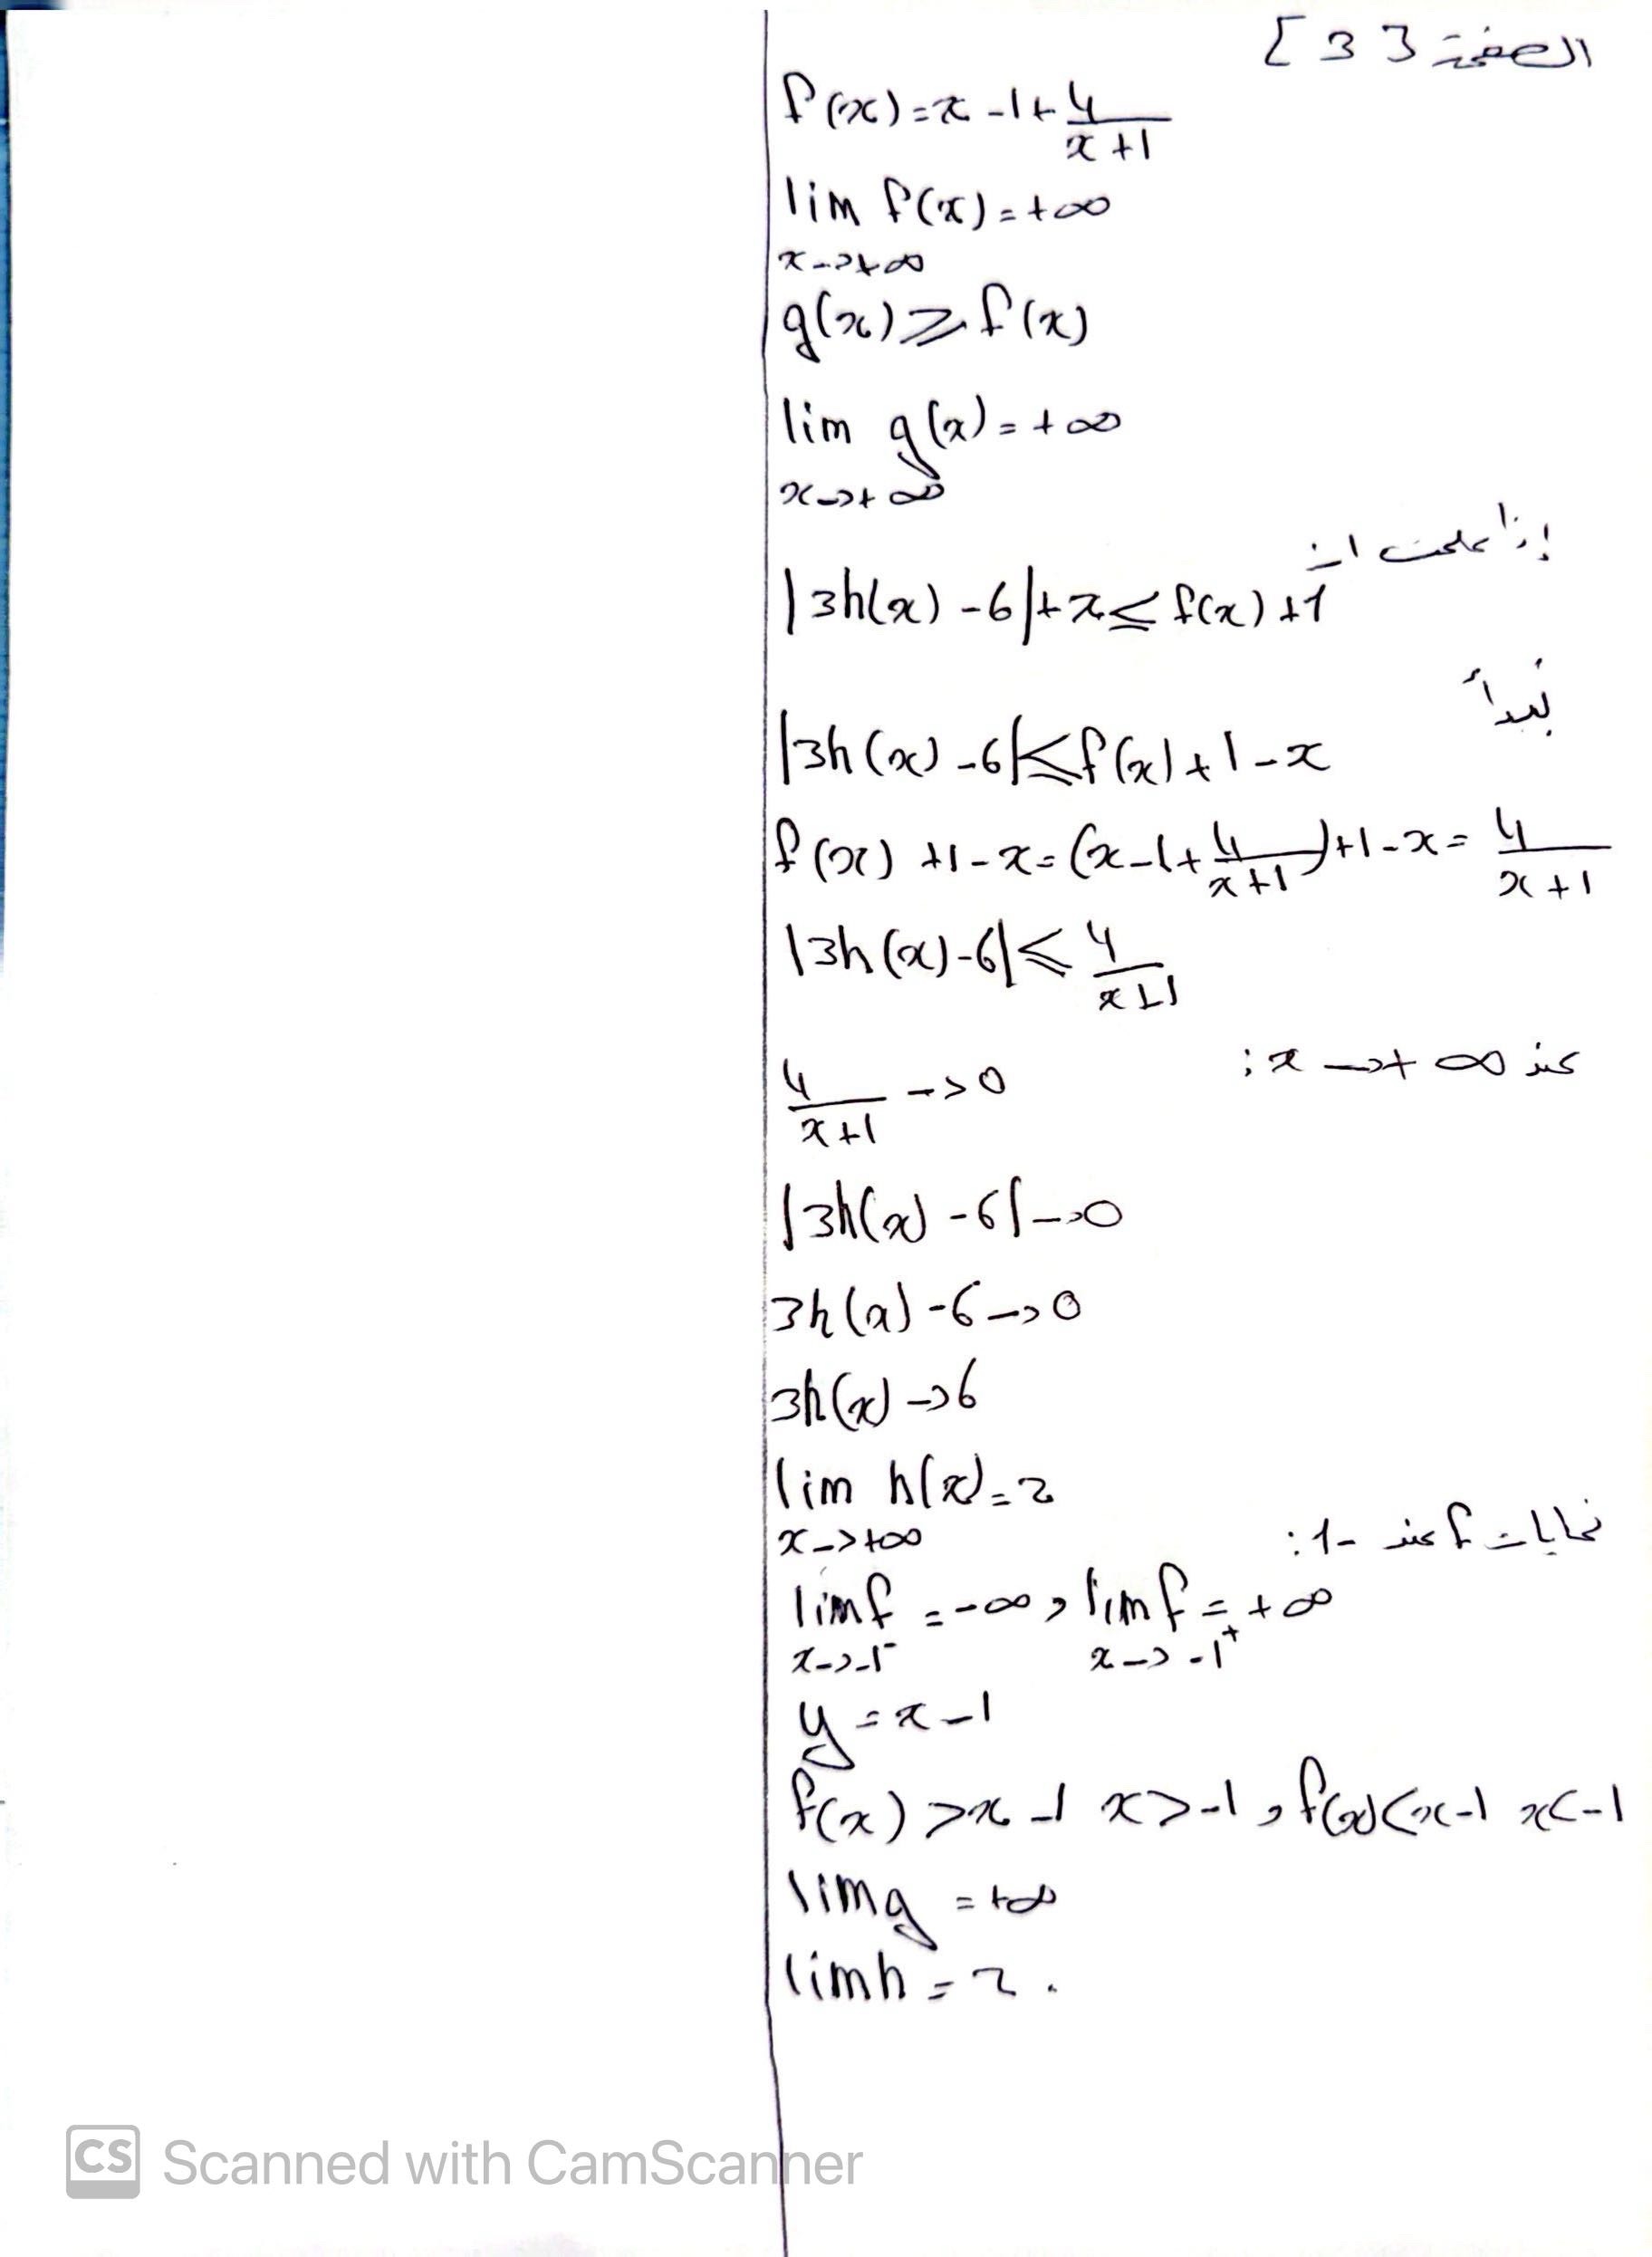 الصفحة [3]
f(x)=x-1+4/(x+1)
lim f(x)=+∞
x->+∞
g(x)⩾f(x)
lim g(x)=+∞
x->+∞
إذا علمت ان
|3h(x)-6|+x≤f(x)+1
نبدأ
|3h(x)-6|⩽f(x)+1-x
f(x)+1-x=(x-1+4/(x+1))+1-x=4/(x+1)
|3h(x)-6|⩽4/(x+1)
عند x->+∞:
4/(x+1)->0
|3h(x)-6|->0
3h(x)-6->0
3h(x)->6
lim h(x)=2
x->+∞
نهايات f عند -1:
lim f=-∞, lim f=+∞
x->-1⁻ x->-1⁺
y=x-1
f(x)>x-1 x>-1, f(x)<x-1 x<-1
lim g=+∞
lim h=2.
CS Scanned with CamScanner